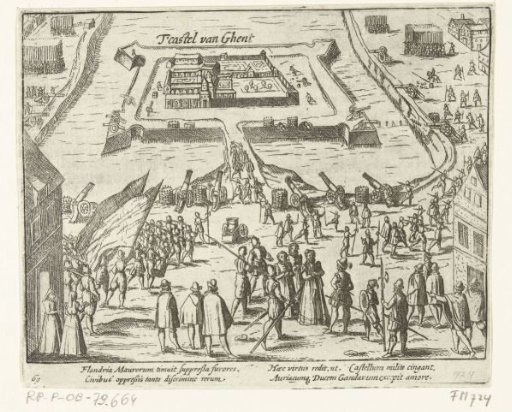 T'castel van Ghent
Flandria Maurorum timuit suppressa furores,
Civibus oppressis tanto discrimine rerum.
Haec virtus rediit, ut Castellum milite cingant,
Auriacumq, Ducem Gandavum excipit amore.
69
RP-P-OB-79.664
FM 724